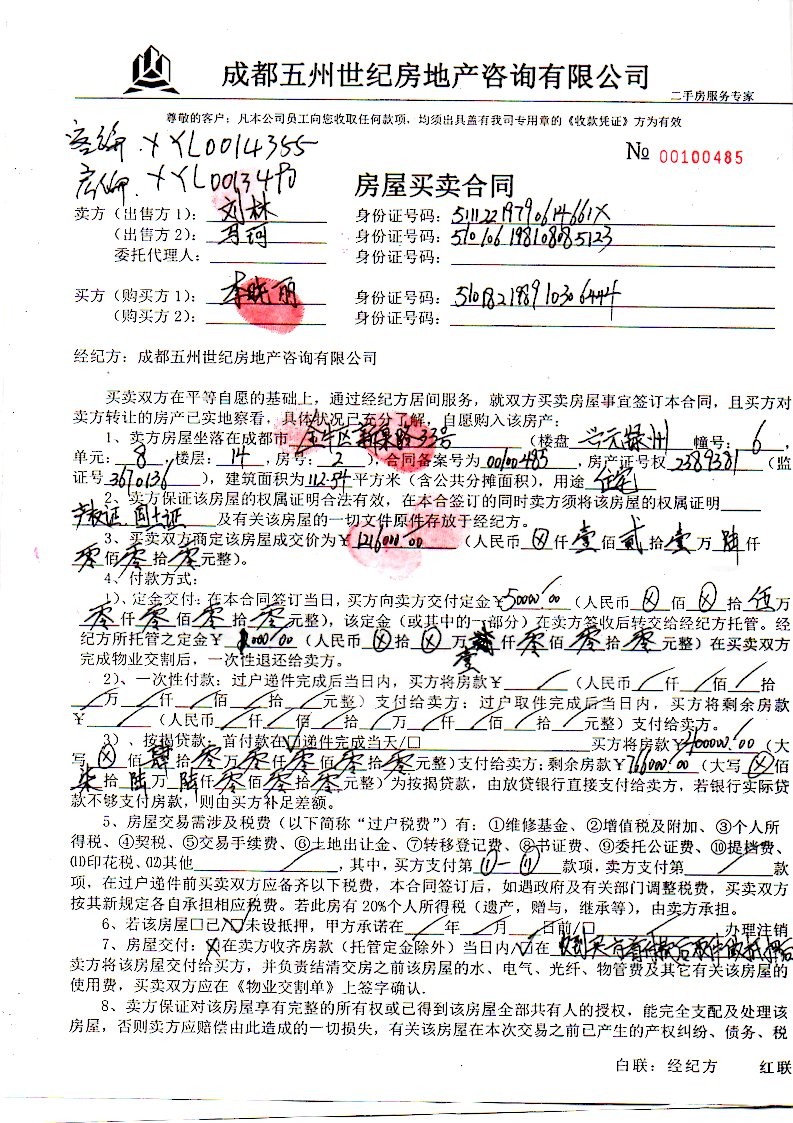 成都五州世纪房地产咨询有限公司
二手房服务专家
尊敬的客户：凡本公司员工向您收取任何款项，均须出具盖有我司专用章的《收款凭证》方为有效
客编 YYL0014355
№ 00100485
房编 YYL0013490
房屋买卖合同
卖方（出售方1）：刘林 身份证号码：51112219790614661X
（出售方2）：马珂 身份证号码：510106198108085123
委托代理人： 身份证号码：
买方（购买方1）：李晓丽 身份证号码：510182198910306444
（购买方2）： 身份证号码：
经纪方：成都五州世纪房地产咨询有限公司
买卖双方在平等自愿的基础上，通过经纪方居间服务，就双方买卖房屋事宜签订本合同，且买方对
卖方转让的房产已实地察看，具体状况已充分了解，自愿购入该房产：
1、卖方房屋坐落在成都市 金牛区 路33号 （楼盘 兴元绿洲 幢号：6，
单元：8，楼层：14，房号：2），合同备案号为00100485，房产证号权2389381（监
证号3670136），建筑面积为112.54平方米（含公共分摊面积），用途 住宅
2、卖方保证该房屋的权属证明合法有效，在本合签订的同时卖方须将该房屋的权属证明
产权证 国土证 及有关该房屋的一切文件原件存放于经纪方。
3、买卖双方商定该房屋成交价为￥1216000.00（人民币ⓧ仟壹佰贰拾壹万陆仟
零佰零拾零元整）。
4、付款方式：
1）、定金交付：在本合同签订当日，买方向卖方交付定金￥50000.00（人民币ⓧ佰ⓧ拾伍万
零仟零佰零拾零元整），该定金（或其中的一部分）在卖方签收后转交给经纪方托管。经
纪方所托管之定金￥1000.00（人民币ⓧ拾ⓧ万壹仟零佰零拾零元整）在买卖双方
完成物业交割后，一次性退还给卖方。
2）、一次性付款：过户递件完成后当日内，买方将房款￥／（人民币／仟／佰／拾
／万／仟／佰／拾／元整）支付给卖方；过户取件完成后当日内，买方将剩余房款
￥／（人民币／仟／佰／拾／万／仟／佰／拾／元整）支付给卖方。
3）、按揭贷款：首付款在☑递件完成当天/□ 买方将房款￥400000.00（大
写ⓧ佰肆拾零万零仟零佰零拾零元整）支付给卖方；剩余房款￥766000.00（大写ⓧ佰
柒拾陆万陆仟零佰零拾零元整）为按揭贷款，由放贷银行直接支付给卖方，若银行实际贷
款不够支付房款，则由买方补足差额。
5、房屋交易需涉及税费（以下简称“过户税费”）有：①维修基金、②增值税及附加、③个人所
得税、④契税、⑤交易手续费、⑥土地出让金、⑦转移登记费、⑧书证费、⑨委托公证费、⑩提档费、
⑾印花税、⑿其他／，其中，买方支付第①-⑪款项，卖方支付第／款
项，在过户递件前买卖双方应备齐以下税费，本合同签订后，如遇政府及有关部门调整税费，买卖双方
按其新规定各自承担相应税费。若此房有20%个人所得税（遗产，赠与，继承等），由卖方承担。
6、若该房屋□已/☑未设抵押，甲方承诺在／年／月／日前/□／办理注销
7、房屋交付：☒在卖方收齐房款（托管定金除外）当日内/☑在 收到买方首付款后
卖方将该房屋交付给买方，并负责结清交房之前该房屋的水、电气、光纤、物管费及其它有关该房屋的
使用费，买卖双方应在《物业交割单》上签字确认.
8、卖方保证对该房屋享有完整的所有权或已得到该房屋全部共有人的授权，能完全支配及处理该
房屋，否则卖方应赔偿由此造成的一切损失，有关该房屋在本次交易之前已产生的产权纠纷、债务、税
白联：经纪方 红联